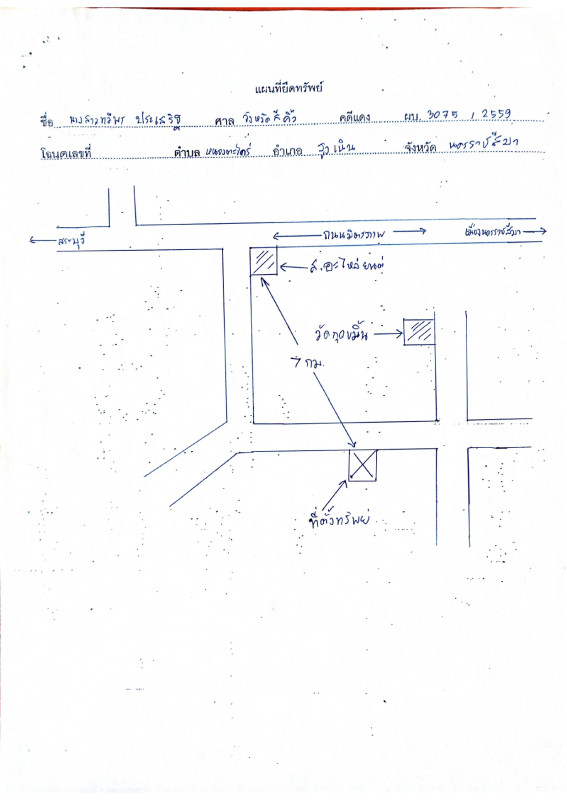 แผนที่ยึดทรัพย์
ชื่อ นางสาวทวีพร ประเสริฐ ศาล จังหวัดสีคิ้ว คดีแดง ผบ. 3075 / 2559
โฉนดเลขที่ ตำบล หนองตะไก้ อำเภอ สูงเนิน จังหวัด นครราชสีมา
สระบุรี ถนนมิตรภาพ เมืองนครราชสีมา
ส.อะไหล่ยนต์
วัดกุดขมิ้น
7 กม.
ที่ตั้งทรัพย์